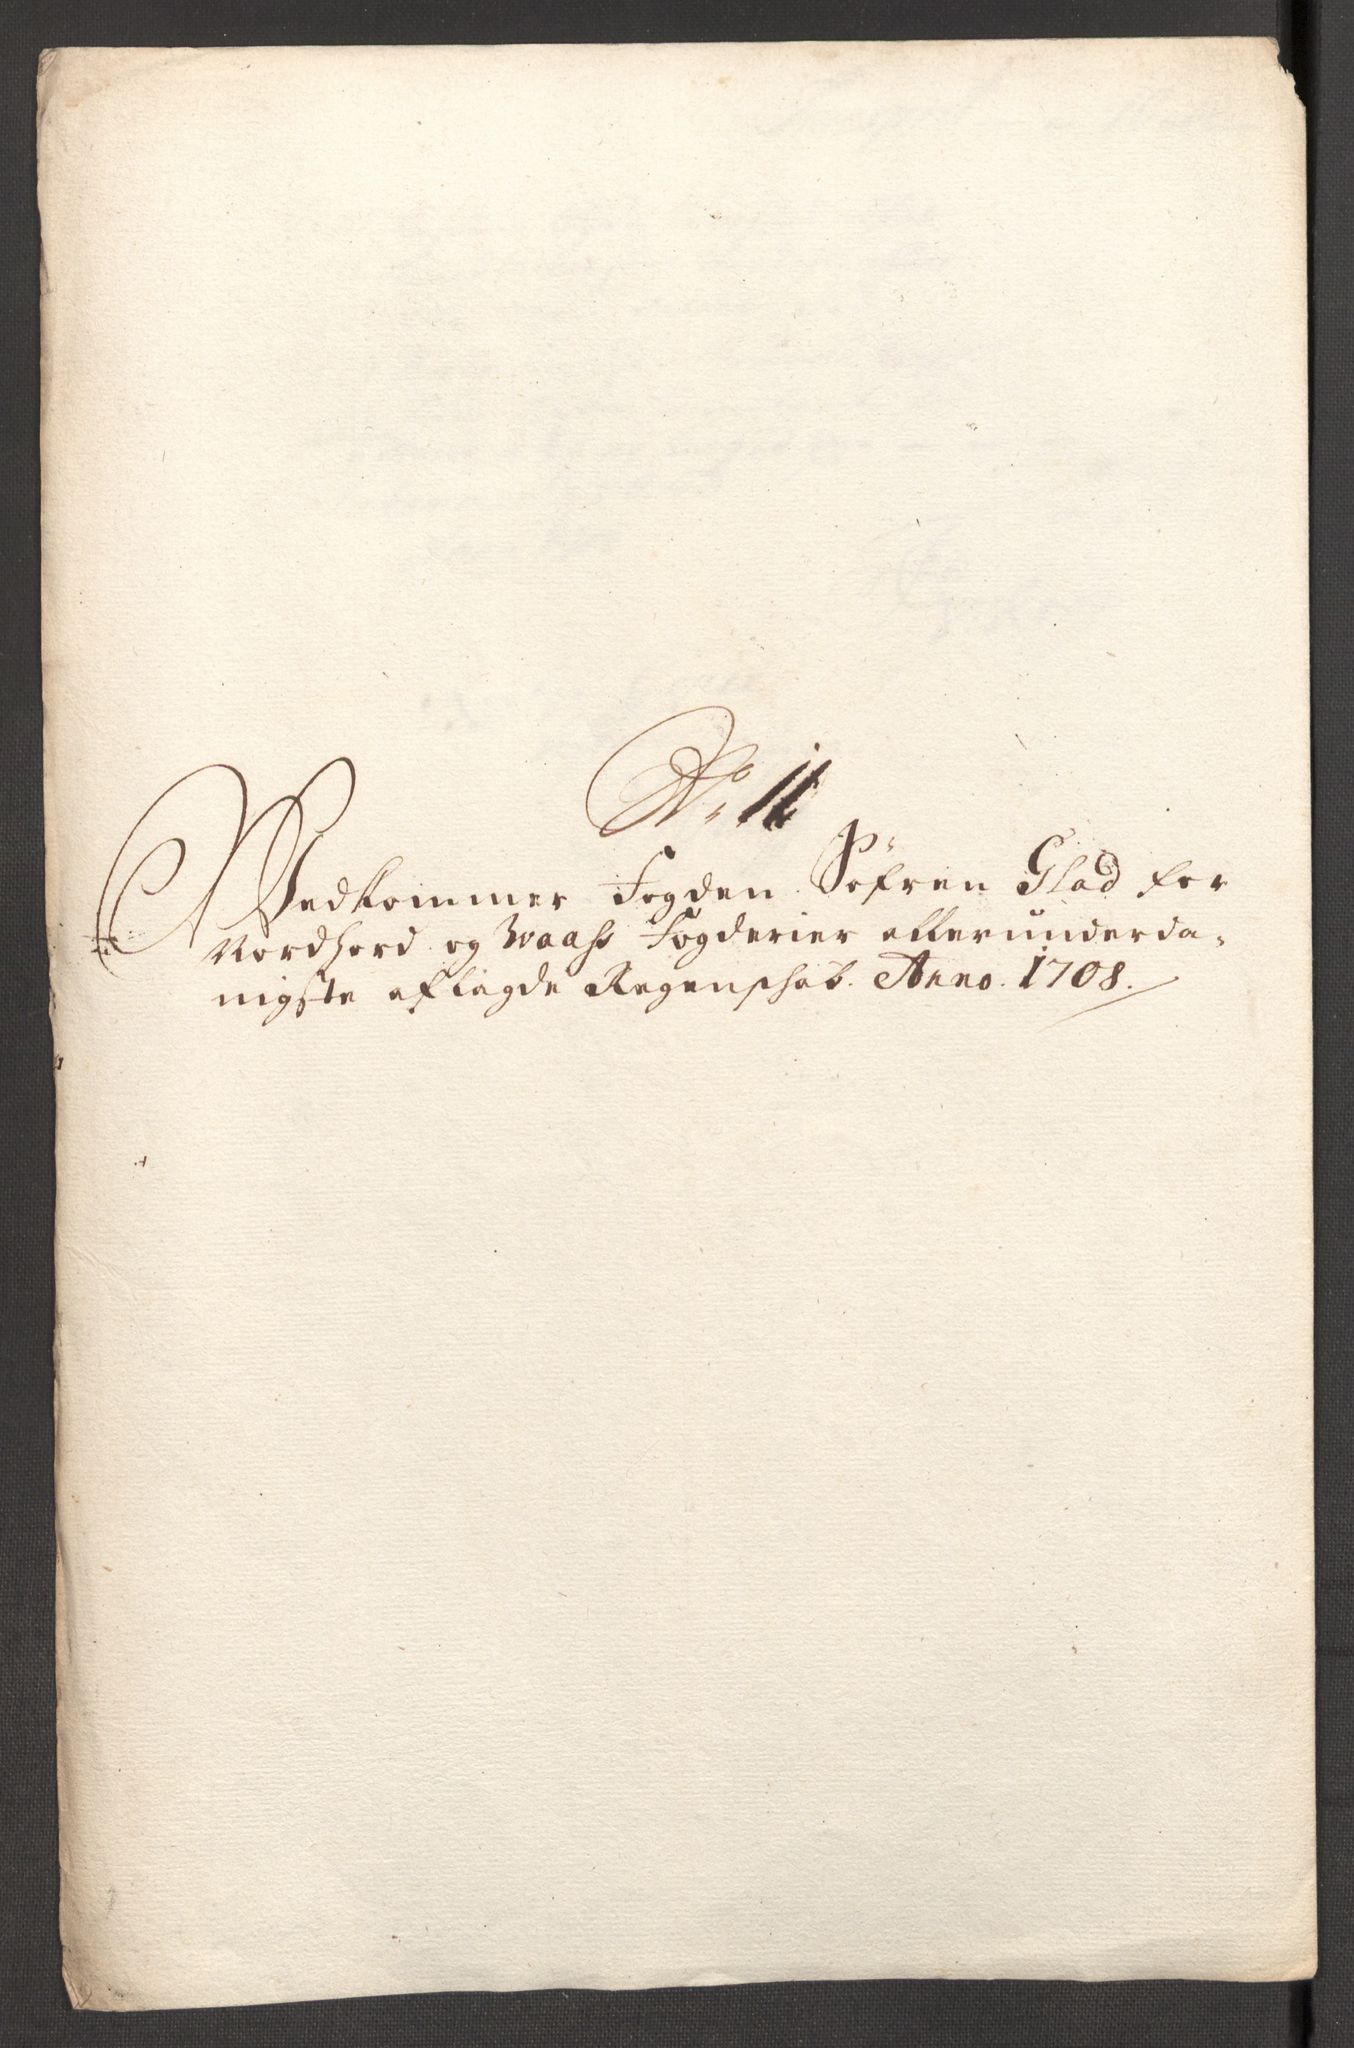 No. 11
Vedkommer Fogden Søfren Glad for
Nordhord og Waass Fogderier allerunderda-
nigste aflagde Regenschab. Anno. 1708.